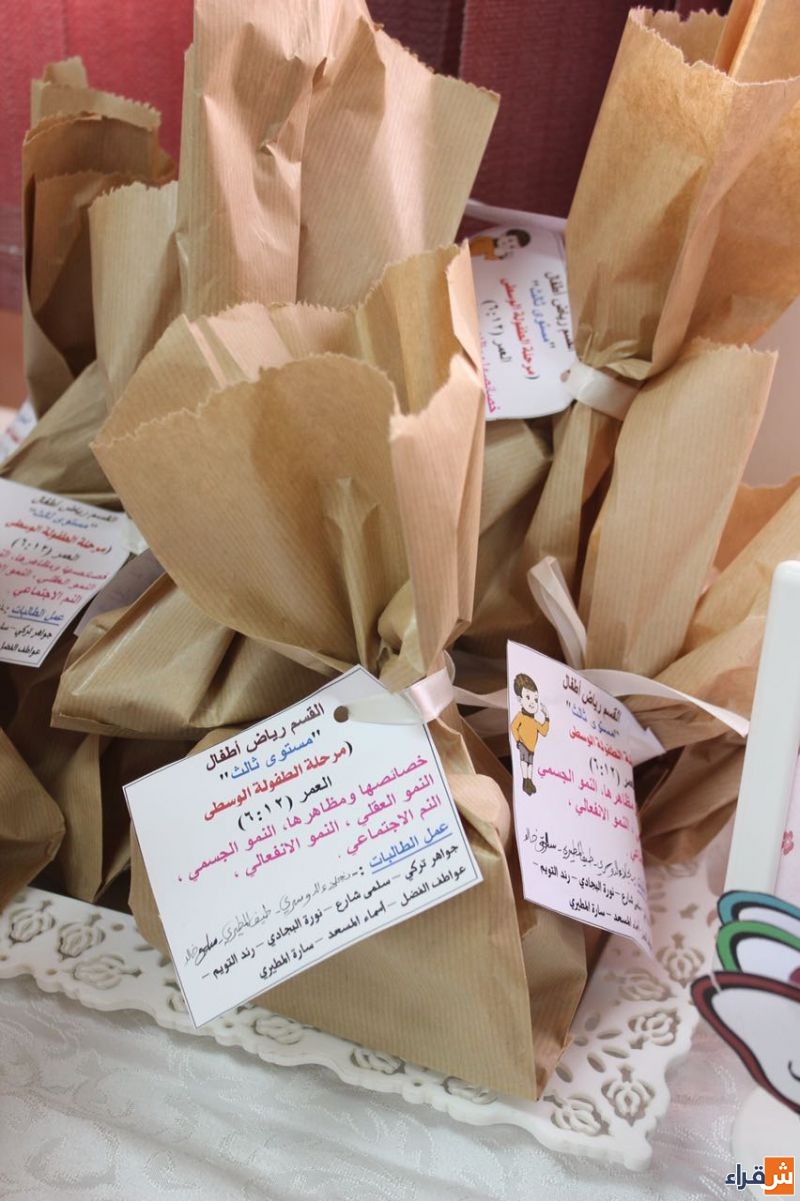 القسم رياض أطفال
"مستوى ثالث"
(مرحلة الطفولة الوسطى
العمر (٦:١٢)
خصائصها ومظاهرها، النمو الجسمي ،
النمو العقلي ، النمو الانفعالي ،
النم الاجتماعي .
عمل الطالبات :-
جواهر تركي – سلمى شارع – نورة البجادي – رند التويم –
عواطف الفضل – أسماء المسعد – سارة المطيري
القسم رياض أطفال
"مستوى ثالث"
(مرحلة الطفولة الوسطى
العمر (٦:١٢)
القسم رياض أطفال
"مستوى ثالث"
(مرحلة الطفولة الوسطى
العمر (٦:١٢)
خصائصها ومظاهرها، الن
النمو العقلي ، النمو
النم الاجتماعي
عمل الطالبات :-
جواهر تركي –
عواطف الفضل
القسم رياض أطفال
"مستوى ثالث"
الطفولة الوسطى
(٦:١٢)
ومظاهرها، النمو الجسمي
النمو الانفعالي ،
شارع – نورة البجادي – رند التويم –
المسعد – سارة المطيري
شقراء